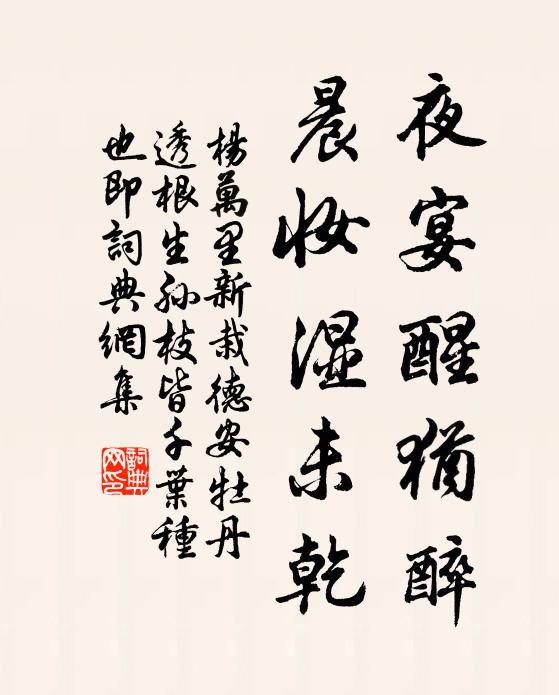 夜宴醒猶醉
晨妝湿未乾
楊萬里新栽德安牡丹
透根生孙枝皆千葉種
也即詞典網集
詞典网印